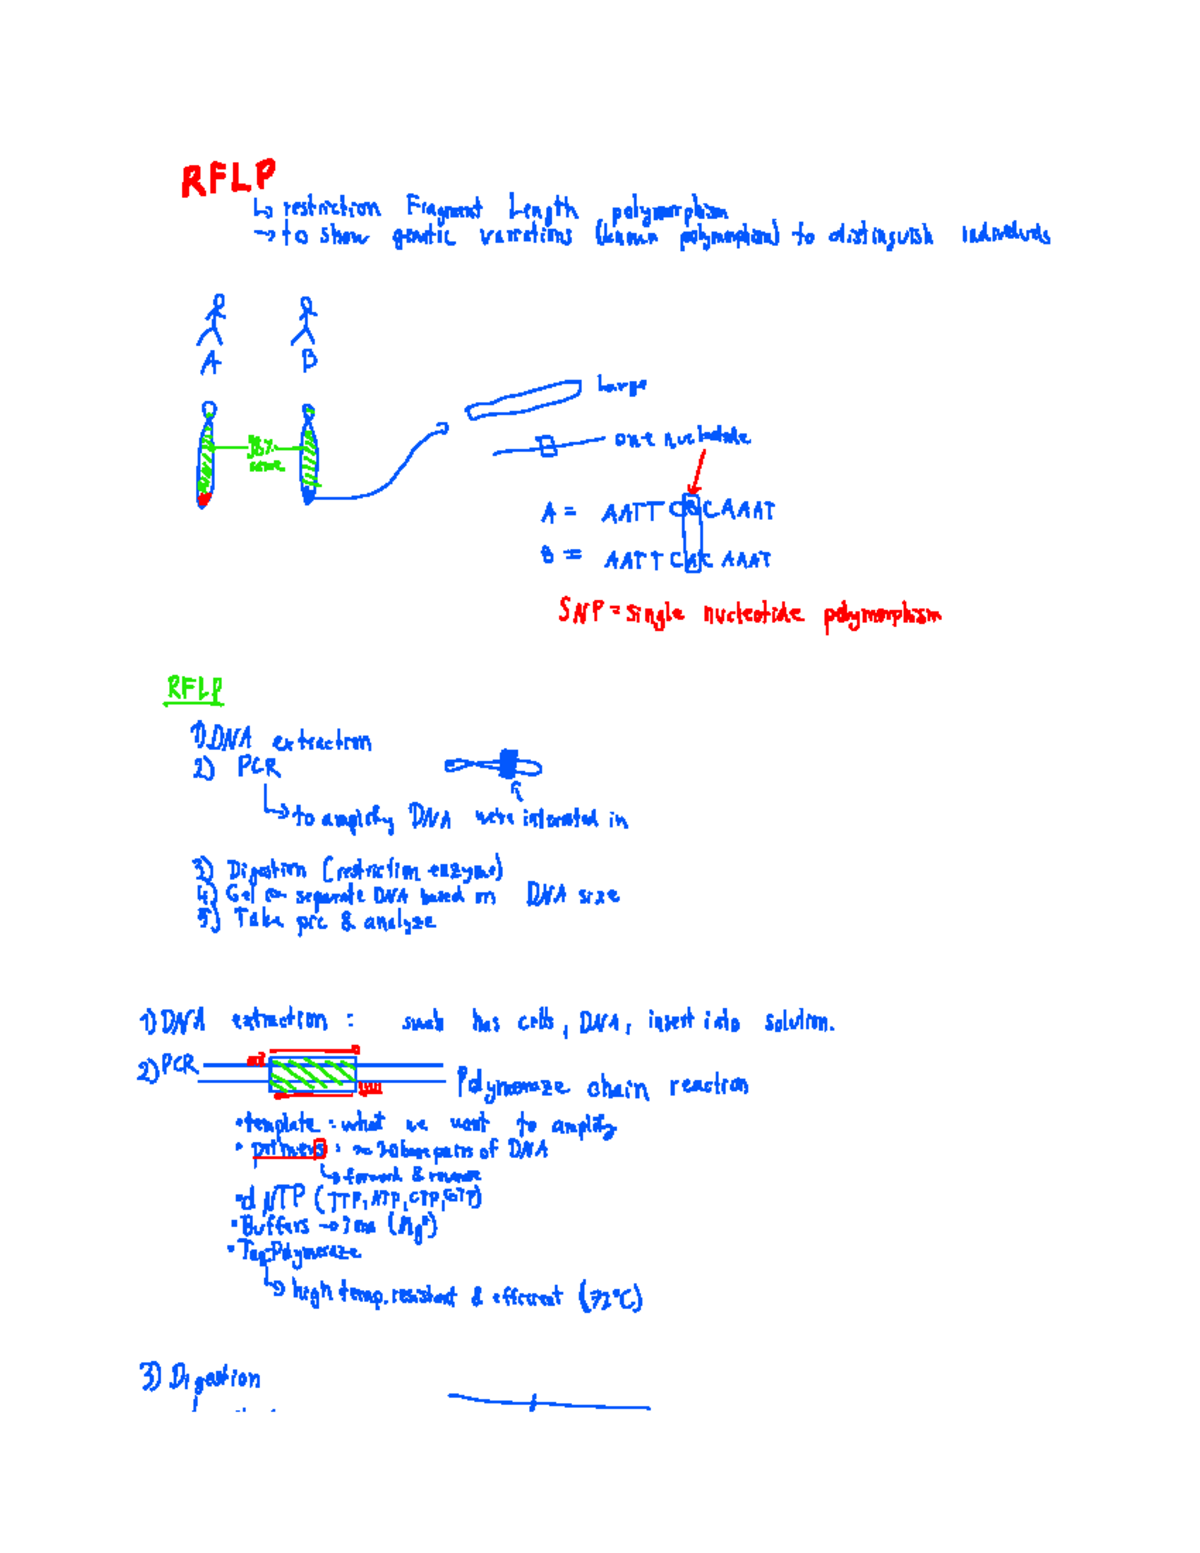 RFLP
↳ restriction Fragment Length polymorphism
→ to show genetic variations (known polymorphism) to distinguish individuals
A B
Large
98% same
one nucleotide
A = AATT CGCAAAT
B = AATT CAC AAAT
SNP = single nucleotide polymorphism
RFLP
1) DNA extraction
2) PCR
↳ to amplify DNA we're interested in
3) Digestion (restriction enzyme)
4) Gel separate DNA based on DNA size
5) Take pic & analyze
1) DNA extraction : swab has cells, DNA, insert into solution.
2) PCR
Polymeraze chain reaction
• template : what we want to amplify
• primers : ~ 20 base pairs of DNA
↳ forward & reverse
• dNTP (TTP, ATP, CTP, GTP)
• Buffers → (Mg²)
• Taq-Polymeraze
↳ high temp. resistant & efficient (72°C)
3) Digestion